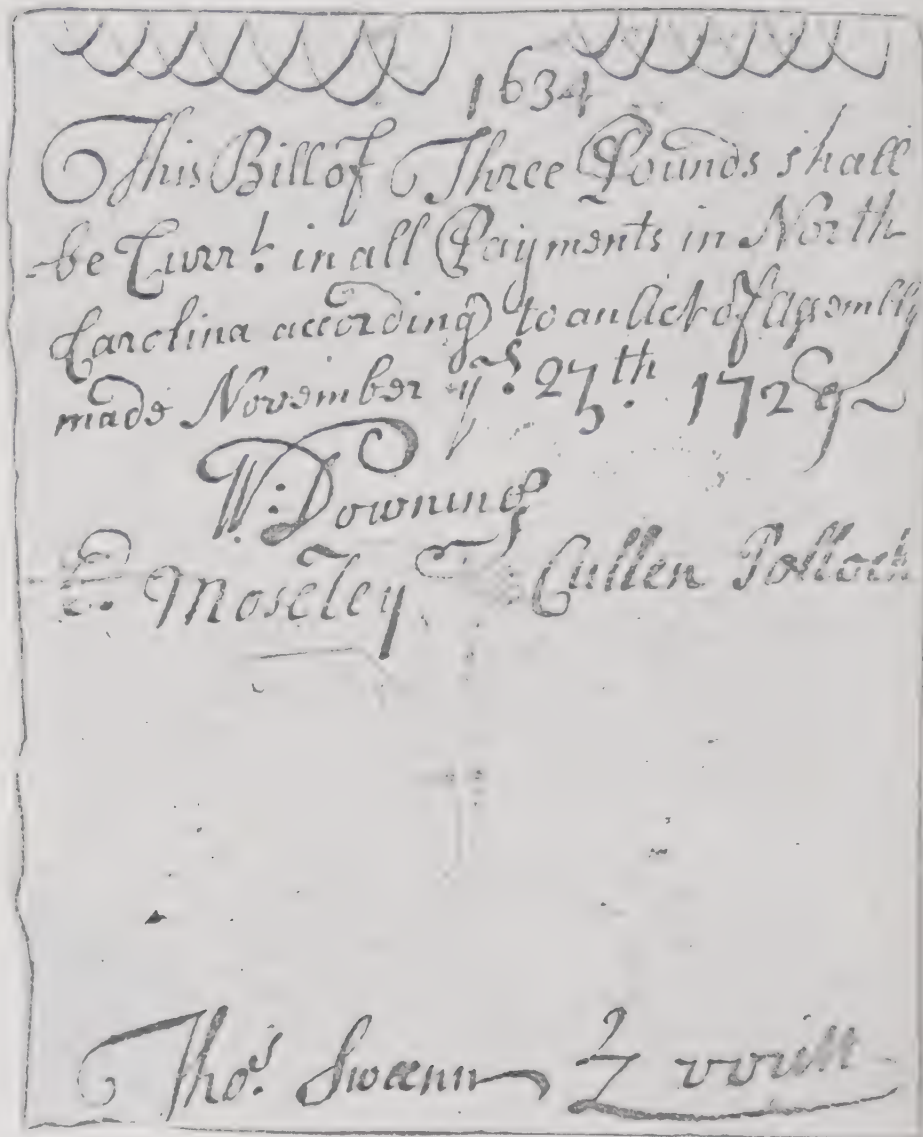 1634
This Bill of Three Pounds shall
be Curr.t in all Payments in North
Carolina according to an Act of Assembly
made November ye. 27th. 1729
W: Downing
E. Moseley Cullen Pollock
Tho.s Swann